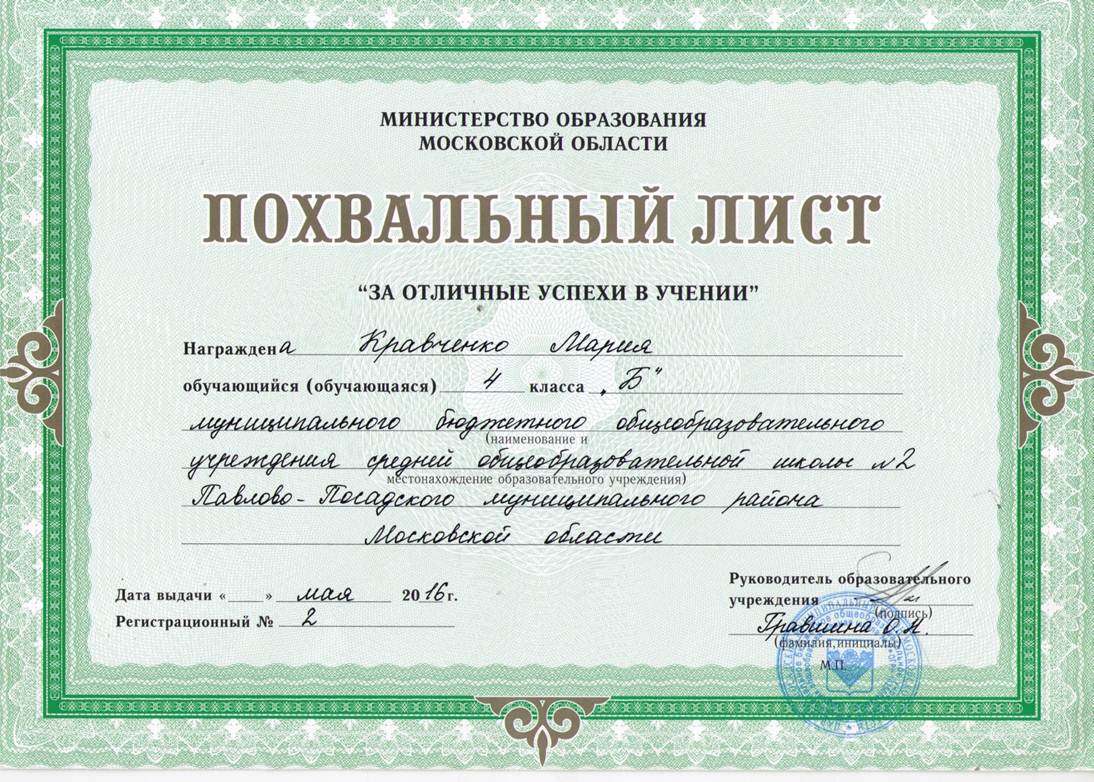 МИНИСТЕРСТВО ОБРАЗОВАНИЯ
МОСКОВСКОЙ ОБЛАСТИ
ПОХВАЛЬНЫЙ ЛИСТ
“ЗА ОТЛИЧНЫЕ УСПЕХИ В УЧЕНИИ”
Награждена Кравченко Мария
обучающийся (обучающаяся) 4 класса „Б"
муниципального бюджетного общеобразовательного
(наименование и
учреждения средней общеобразовательной школы №2
местонахождение образовательного учреждения)
Павлово-Посадского муниципального района
Московской области
Дата выдачи «___» мая 2016г.
Регистрационный № 2
Руководитель образовательного
учреждения
(подпись)
Гравшина О.А.
(фамилия,инициалы)
М.П.